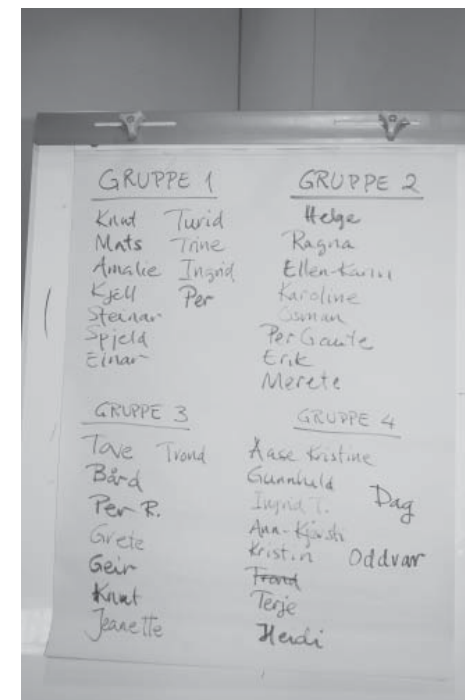 GRUPPE 1
Knut Turid
Mats Trine
Amalie Ingrid
Kjell Per
Steinar
Spjeld
Einar
GRUPPE 2
Helge
Ragna
Ellen-Karin
Karoline
Osman
Per Gaute
Erik
Merete
GRUPPE 3
Tove Trond
Bård
Per R.
Grete
Geir
Knut
Jeanette
GRUPPE 4
Aase Kristine
Gunnhild
Ingrid T. Dag
Ann-Kjersti
Kristin Oddvar
Trond
Terje
Heidi